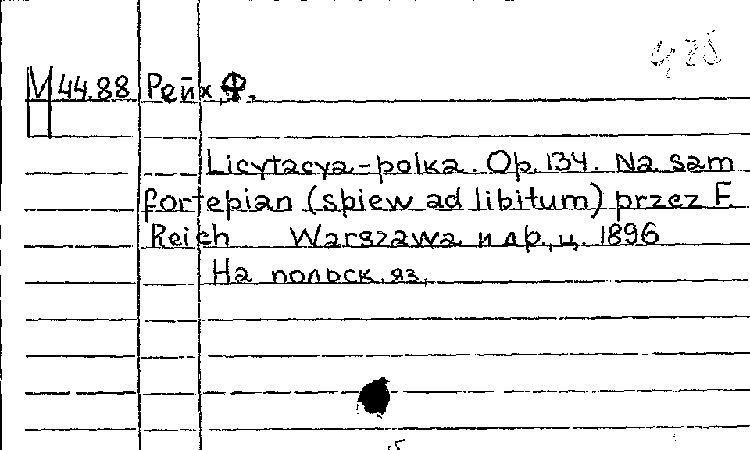 М 44.88 Рейх, Ф.
П
Licytacya-polka. Op. 134. Na sam
fortepian (spiew ad libitum) przez F.
Reich Warszawa и др., ц. 1896
На польск. яз.